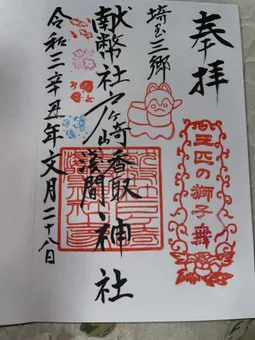 奉拝
三匹の獅子舞
埼玉三郷
献幣社戸ヶ崎香取
浅間神社
令和三辛丑年文月二十八日